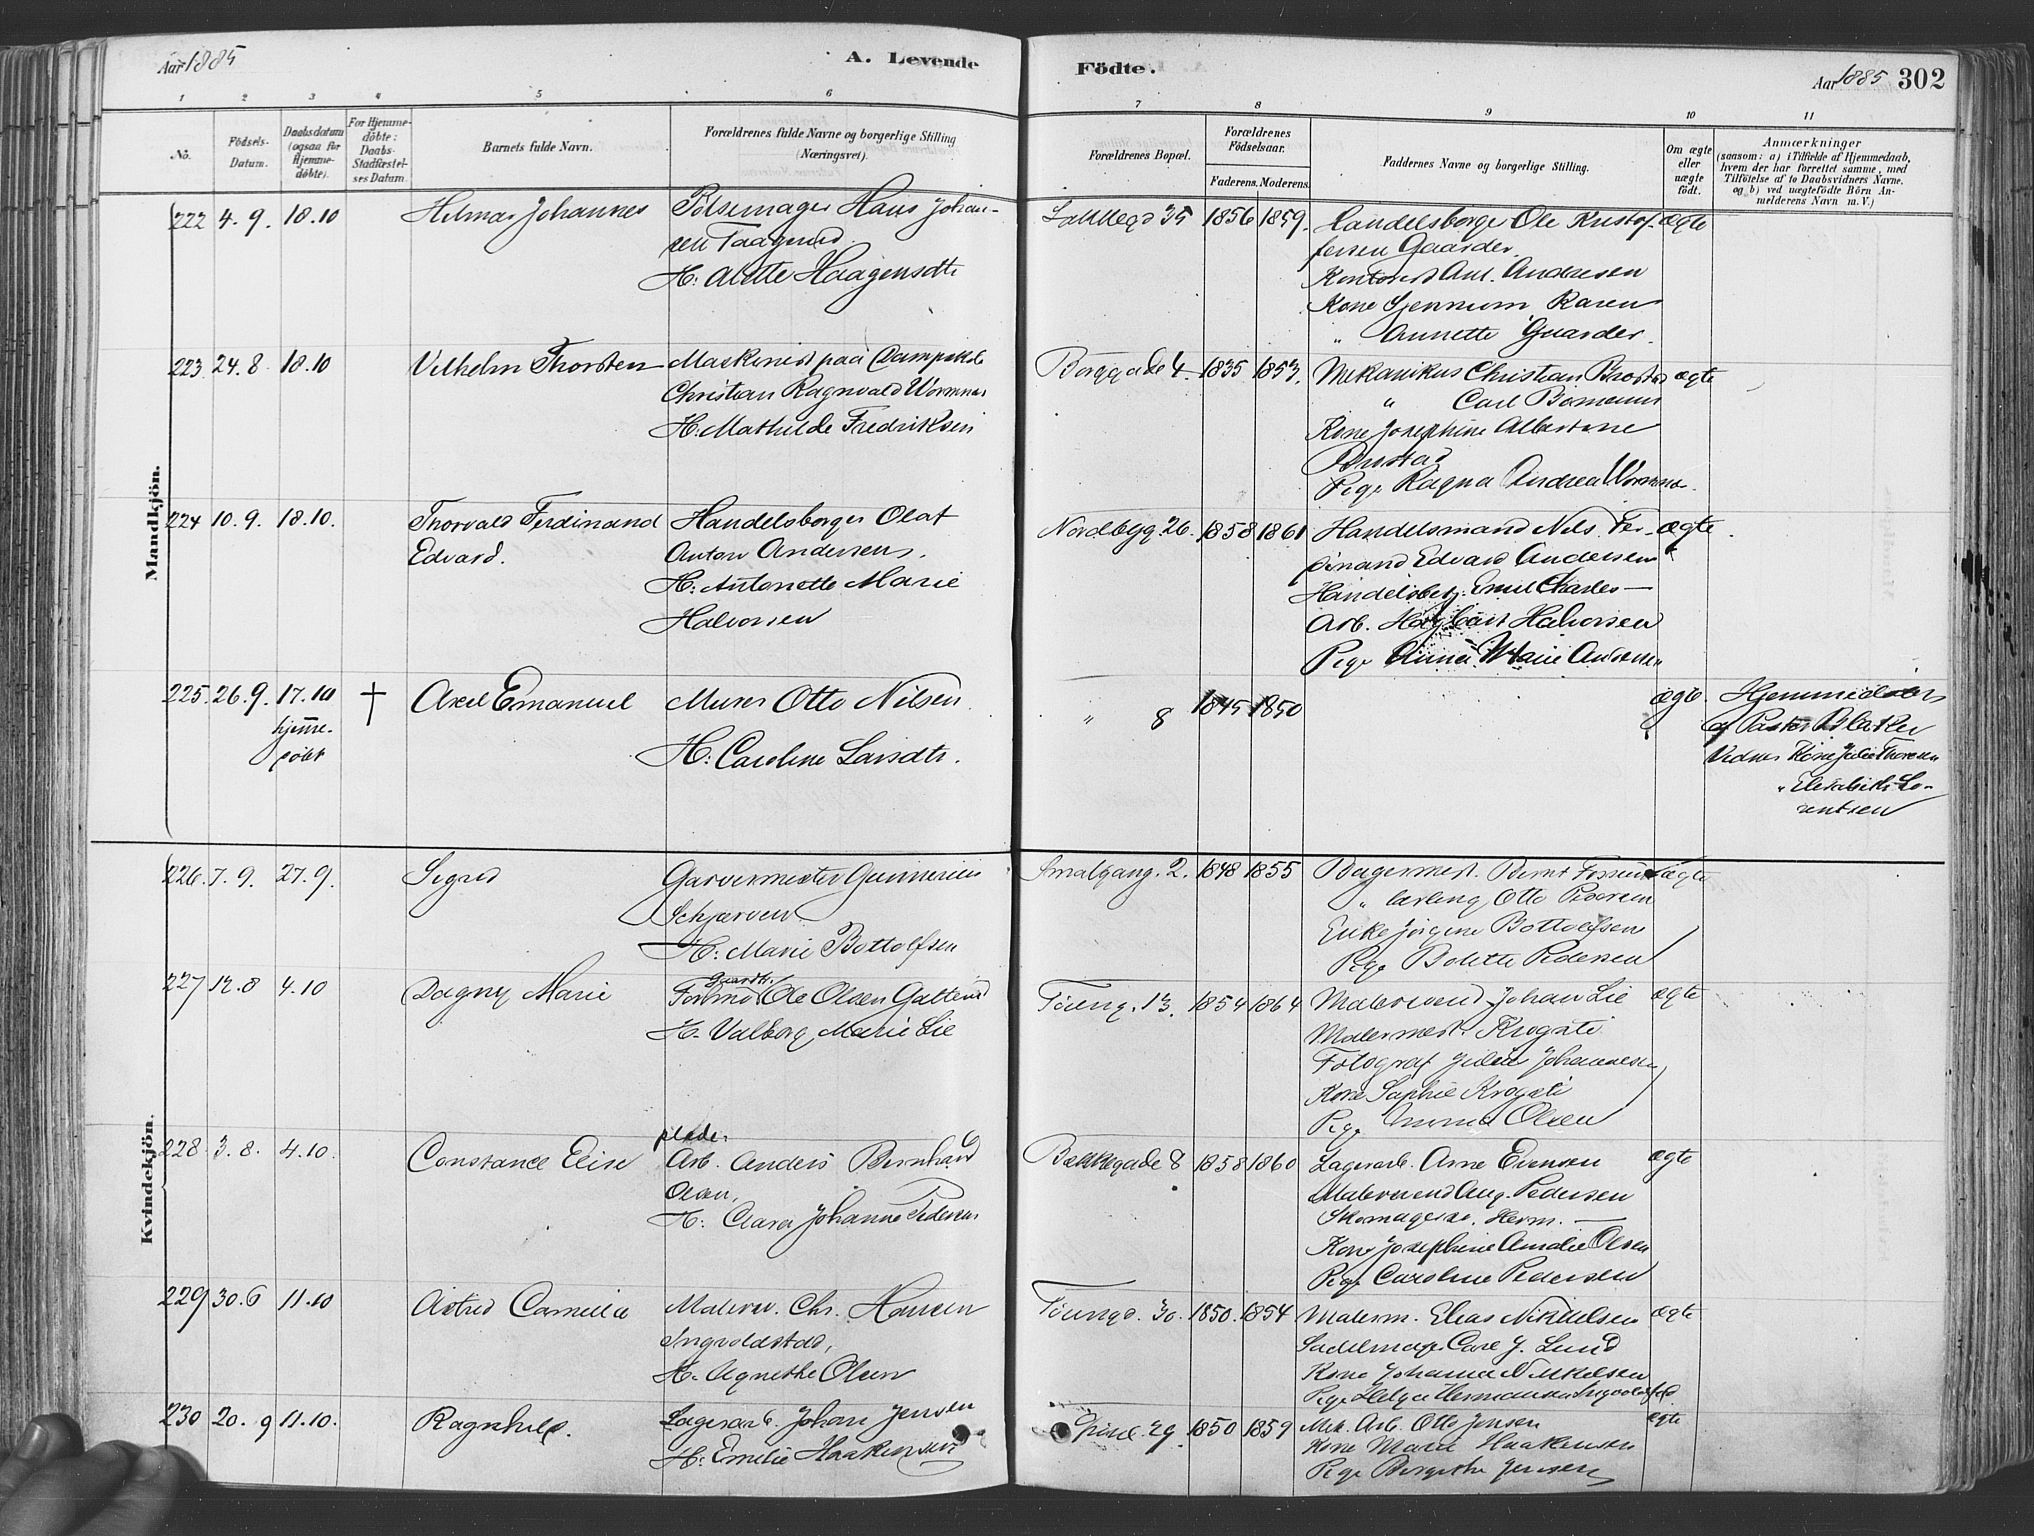 Aar 1885
A. Levende
Födte.
Aar 1885 302
1 2 3 4 5 6 7 8 9 10 11
No.
Födsels-
Datum.
Daabsdatum
(ogsaa for
Hjemme-
döbte).
For Hjemme-
döbte:
Daabs-
Stadfæstel-
ses Datum.
Barnets fulde Navn.
Forældrenes fulde Navne og borgerlige Stilling
(Næringsvei).
Forældrenes Bopæl.
Forældrenes
Födselsaar.
Faderens. Moderens.
Faddernes Navne og borgerlige Stilling.
Om ægte
eller
uægte
födt.
Anmærkninger
(saasom: a) i Tilfælde af Hjemmedaab,
hvem der har forrettet samme, med
Tilföielse af to Daabsvidners Navne,
og b) ved uægtefödte Börn An-
melderens Navn m. V.)
Mandkjön.
222 4. 9. 18.10 Hilmar Johannes
Pölsemager Hans Johan-
sen
H: Haagensdtr
35 1856 1859.
Handelsborger Ole Kristof-
fersen Gaarder
Kontorist Ant. Andresen
Kone Karen
" Annette Gaarder.
ægte
223 24. 8 18.10 Vilhelm Thorsten
Maskinist paa
Christian Ragnvald
H: Mathilde Fredriksen
Borggade 4. 1835 1853.
Mekanikus Christian
" Carl
Kone Josephine Albertine
Pige Ragna Andrea
ægte
224 10. 9. 18.10. Thorvald Ferdinand
Edvard.
Handelsborger Olaf
Anton Andersen.
H: Antonette Marie
Halvorsen
Nordbygg. 26. 1858 1861
Handelsmand Nils Fer-
dinand Edvard Andersen
Handelsbetj. Emil Charles —
Arb. Halvorsen
Pige Anna Marie Andersen
ægte
225. 26. 9. 17.10
hjemme-
döbt
† Axel Emanuel
Murer Otto Nilsen
H: Caroline Larsdtr.
" 8 1845 1850
ægte
Hjemmedöbt
af Pastor
Vidner Kone Julie Thoresen
" Elisabeth Lo-
rentsen
Kvindekjön.
226. 7. 9. 27. 9. Sigrid
Garvermester Gunnerius
Schjerven
H: Marie Bottolfsen
Smalgang. 2. 1848 1855
Bagermest. Bernt
" lærling Otto Pedersen
Enke Jörgine Bottolfsen
Pige Bolette Pedersen
ægte
227 12. 8 4.10 Dagny Marie
Gaardbr.
Ole Olsen
H. Valborg Marie Lie
Töieng. 13. 1854 1864
Malersvend Johan Lie
Malermest. Krogsti
Fotograf Johannesen
Kone Sophie Krogsti
Pige Olsen
ægte
228 3. 8. 4.10. Constance Elise
plade-
Arb. Anders Bernhard
Olsen,
H: Clara Johanne Pedersen
Bakkegade 8 1858 1860
Lagerarb. Arne Evensen
Malersvend Aug. Pedersen
Skomagersv. Herm. —
Kone Josephine Amalie Olsen
Pige Caroline Pedersen
ægte
229 30. 6 11.10 Astrid Camilla
Malersv. Chr. Hansen
Ingvoldstad,
H. Agnethe Olsen
Töiengd. 30. 1850. 1854
Malerm. Elias Nikkelsen
Sadelmager Carl J. Lund
Kone Johanna Nikkelsen
Pige Helga Hermansen
ægte
230 20. 9 11.10. Ragnhild.
Lagerarb. Johan Jensen
H: Emilie Haakensen
29. 1850 1859
Mek. Arb. Otto Jensen
Kone Marie Haakensen
Pige Birgithe Jensen
ægte